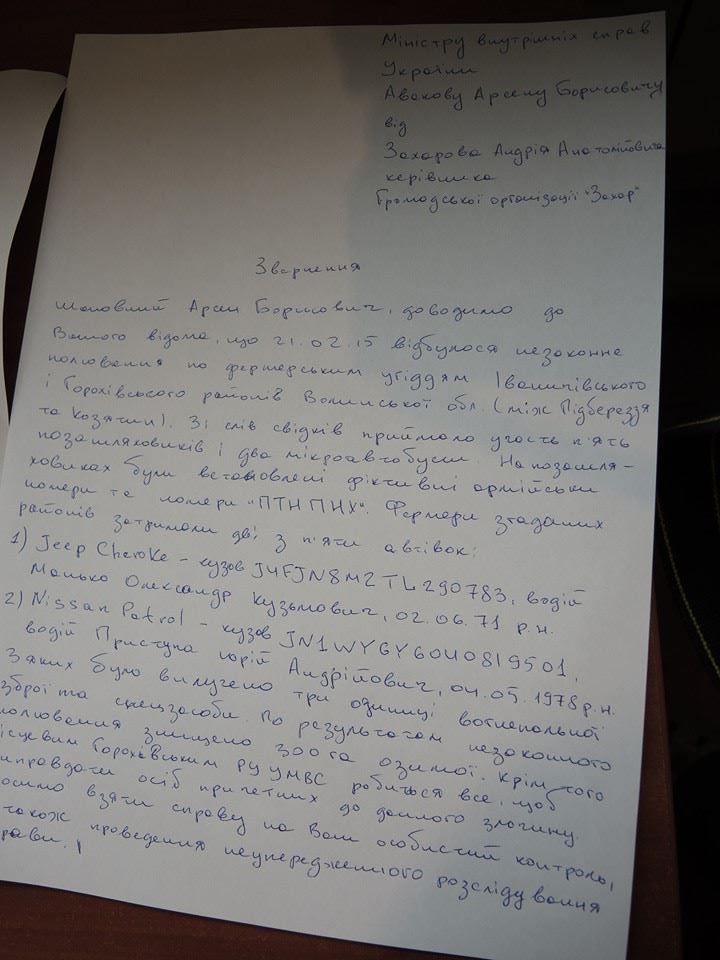 Міністру внутрішніх справ
України
Авакову Арсену Борисовичу
від
Захарова Андрія Анатолійовича
керівника
Громадської організації "Захор"
Звернення
Шановний Арсен Борисович, доводимо до
Вашого відома, що 21.02.15 відбулося незаконне
полювання по фермерським угіддям Іваничівського
і Горохівського районів Волинської обл. (між Підбереззя
та Козятин). Зі слів свідків приймало участь п'ять
позашляховиків і два мікроавтобуси. На позашля-
ховиках були встановлені фіктивні армійськи
номери та номери "ПТН ПНХ". Фермери згаданих
районів затримали дві з п'яти автівок:
1) Jeep Cheroke – кузов J4FJN8M2TL290783, водій
Манько Олександр Кузьмович, 02.06.71 р.н.
2) Nissan Patrol – кузов JN1WYGY60U0819501,
водій Приступа Юрій Андрійович, 04.05.1978 р.н.
З яких було вилучено три одиниці вогнепальної
зброї та спецзасоби. По результатам незаконного
полювання знищено 300 га озимої. Крім того
місцевим Горохівським РУ УМВС робиться все, щоб
виправдати осіб причетних до даного злочину.
Просимо взяти справу на Ваш особистий контроль,
також проведення неупередженного розслідування
справи.